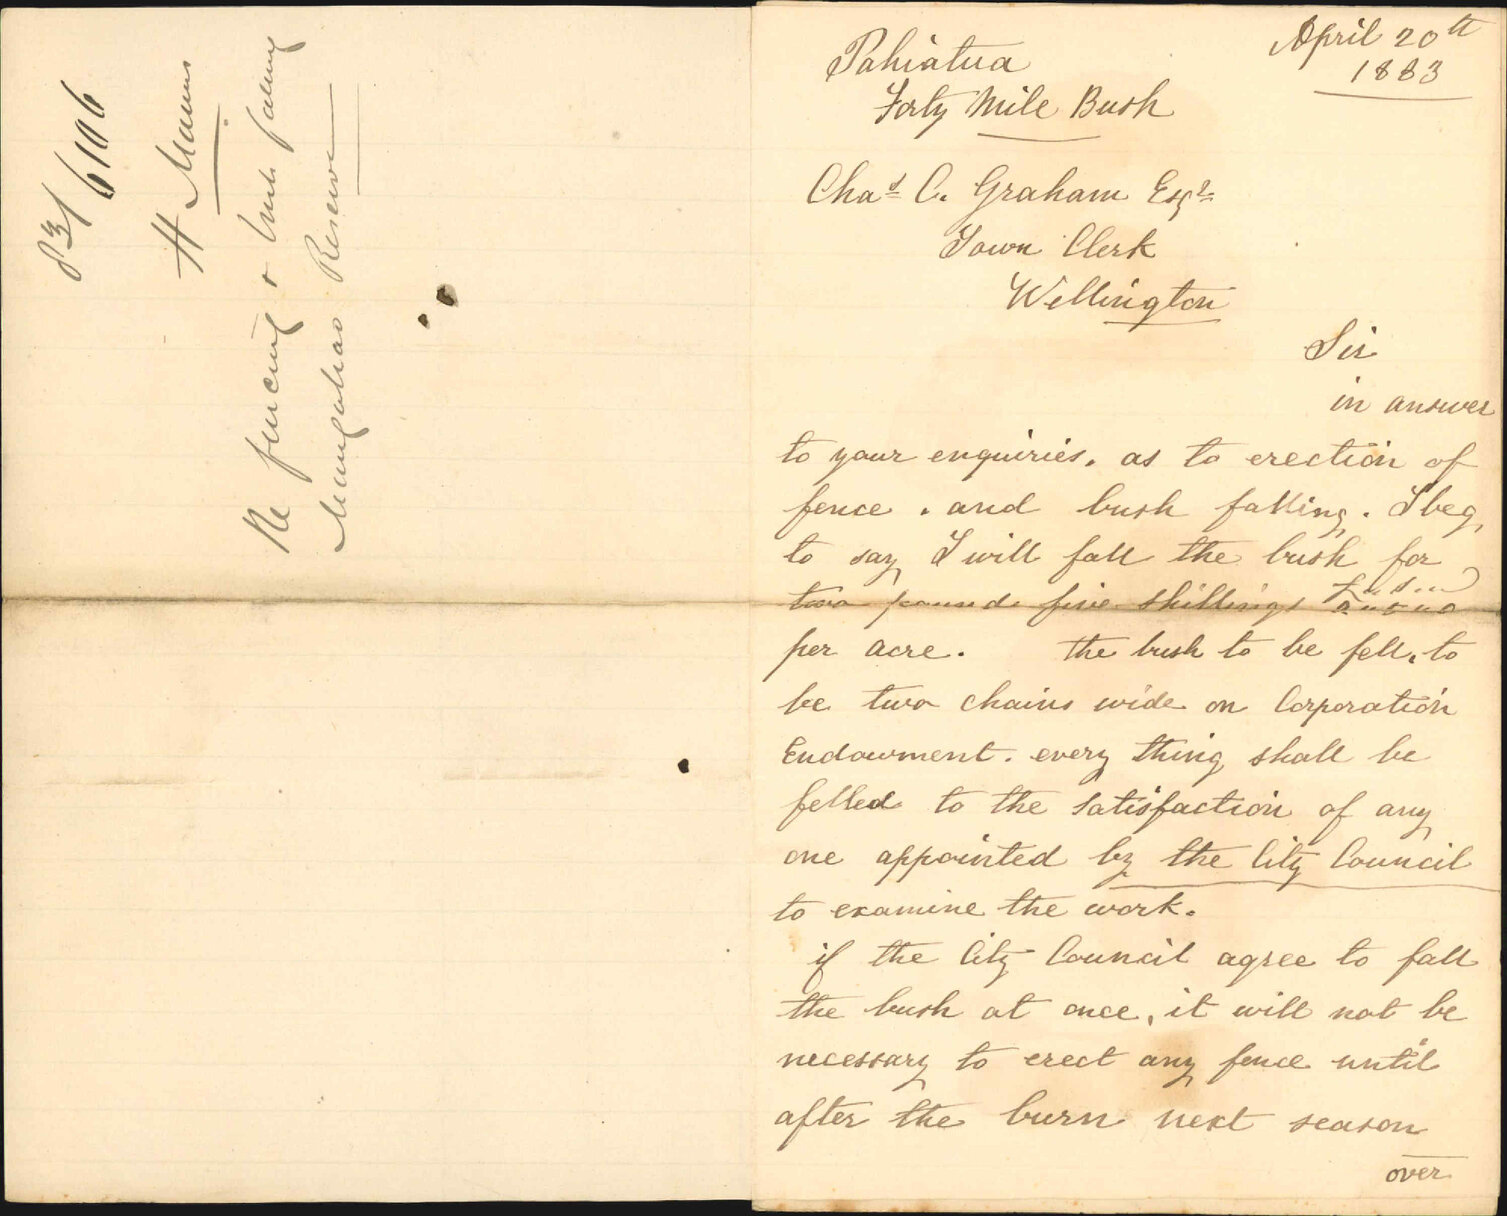 83/6106
H Manns
Re fencing & bush falling
Mungahao Reserve
April 20th
1883
Pahiatua
Forty Mile Bush
Chas C. Graham Esqr
Town Clerk
Wellington
Sir
in answer
to your enquiries. as to erection of
fence . and bush falling. I beg,
to say I will fall the bush for
two pounds five shillings
per acre. the bush to be fell, to
be two chains wide on Corporation
Endowment. every thing shall be
felled to the satisfaction of any
one appointed by the City Council
to examine the work.
if the City Council agree to fall
the bush at once, it will not be
necessary to erect any fence until
after the burn next season
over